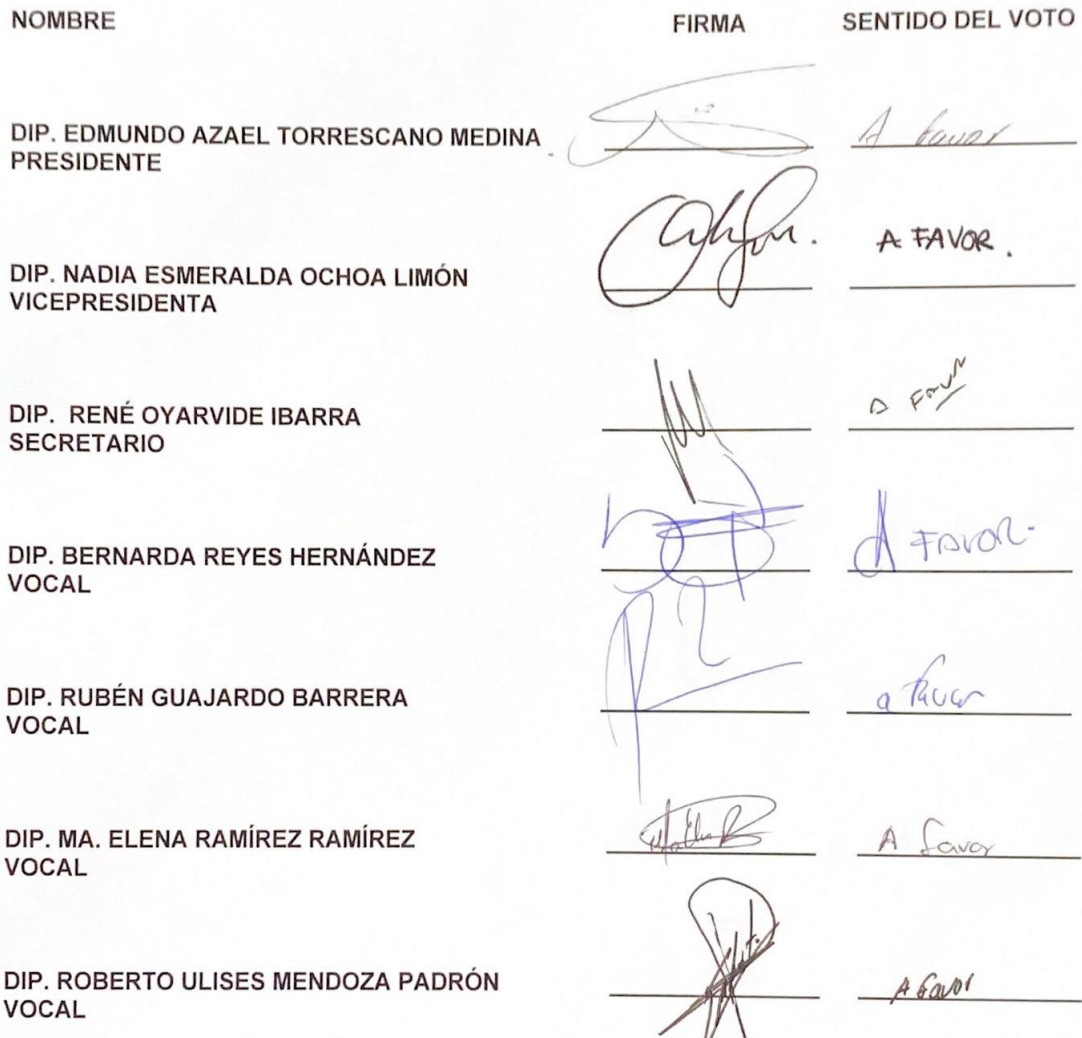 NOMBRE FIRMA SENTIDO DEL VOTO
DIP. EDMUNDO AZAEL TORRESCANO MEDINA A favor
PRESIDENTE
A FAVOR.
DIP. NADIA ESMERALDA OCHOA LIMÓN
VICEPRESIDENTA
DIP. RENÉ OYARVIDE IBARRA A
SECRETARIO
DIP. BERNARDA REYES HERNÁNDEZ A FAVOR.
VOCAL
DIP. RUBÉN GUAJARDO BARRERA a favor
VOCAL
DIP. MA. ELENA RAMÍREZ RAMÍREZ A favor
VOCAL
DIP. ROBERTO ULISES MENDOZA PADRÓN A favor
VOCAL